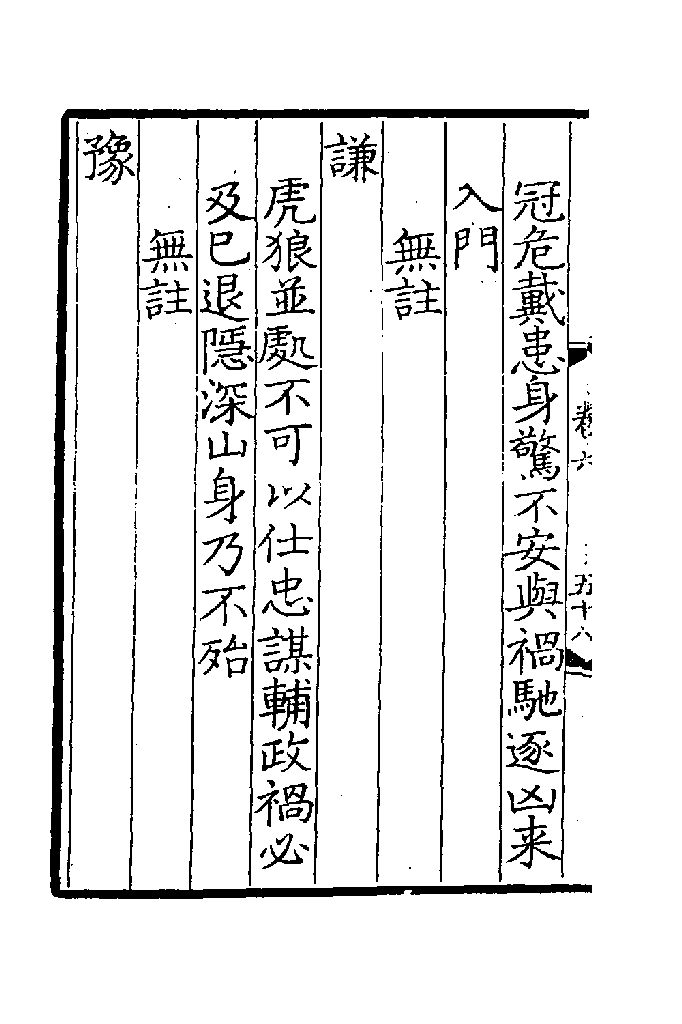 卷六　五十六
冠危戴患身驚不安與禍馳逐凶来
入門
無註
謙
虎狼並處不可以仕忠謀輔政禍必
及已退隱深山身乃不殆
無註
豫